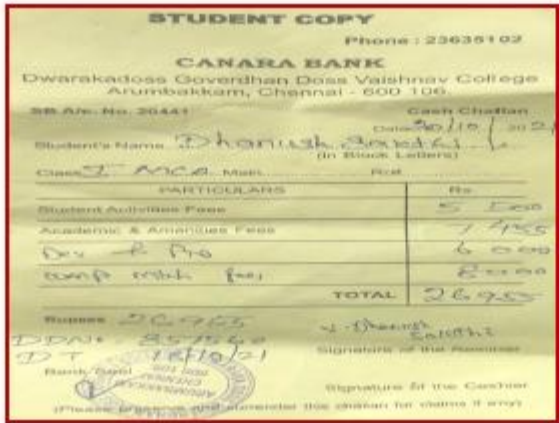 STUDENT COPY
Phone : 23635102
CANARA BANK
Dwarakadoss Goverdhan Doss Vaishnav College
Arumbakkam, Chennai - 600 106.
SB A/c. No. 20441 Cash Challan
Date 20/10/2021
Student's Name Dhanush
(In Block Letters)
Class I MCA Main
PARTICULARS Rs.
Student Activities Fees 5 500
Academic & Amenities Fees 7 455
Dev & Pro 6 000
fees 8000
TOTAL 26955
Rupees 26955
DD No 857540
DT 18/10/21
V. Dhanush
Signature of the Remitter
Bank Seal
ARUMBAKKAM
CHENNAI
Signature of the Cashier
(Please preserve and surrender this challan for claims if any)